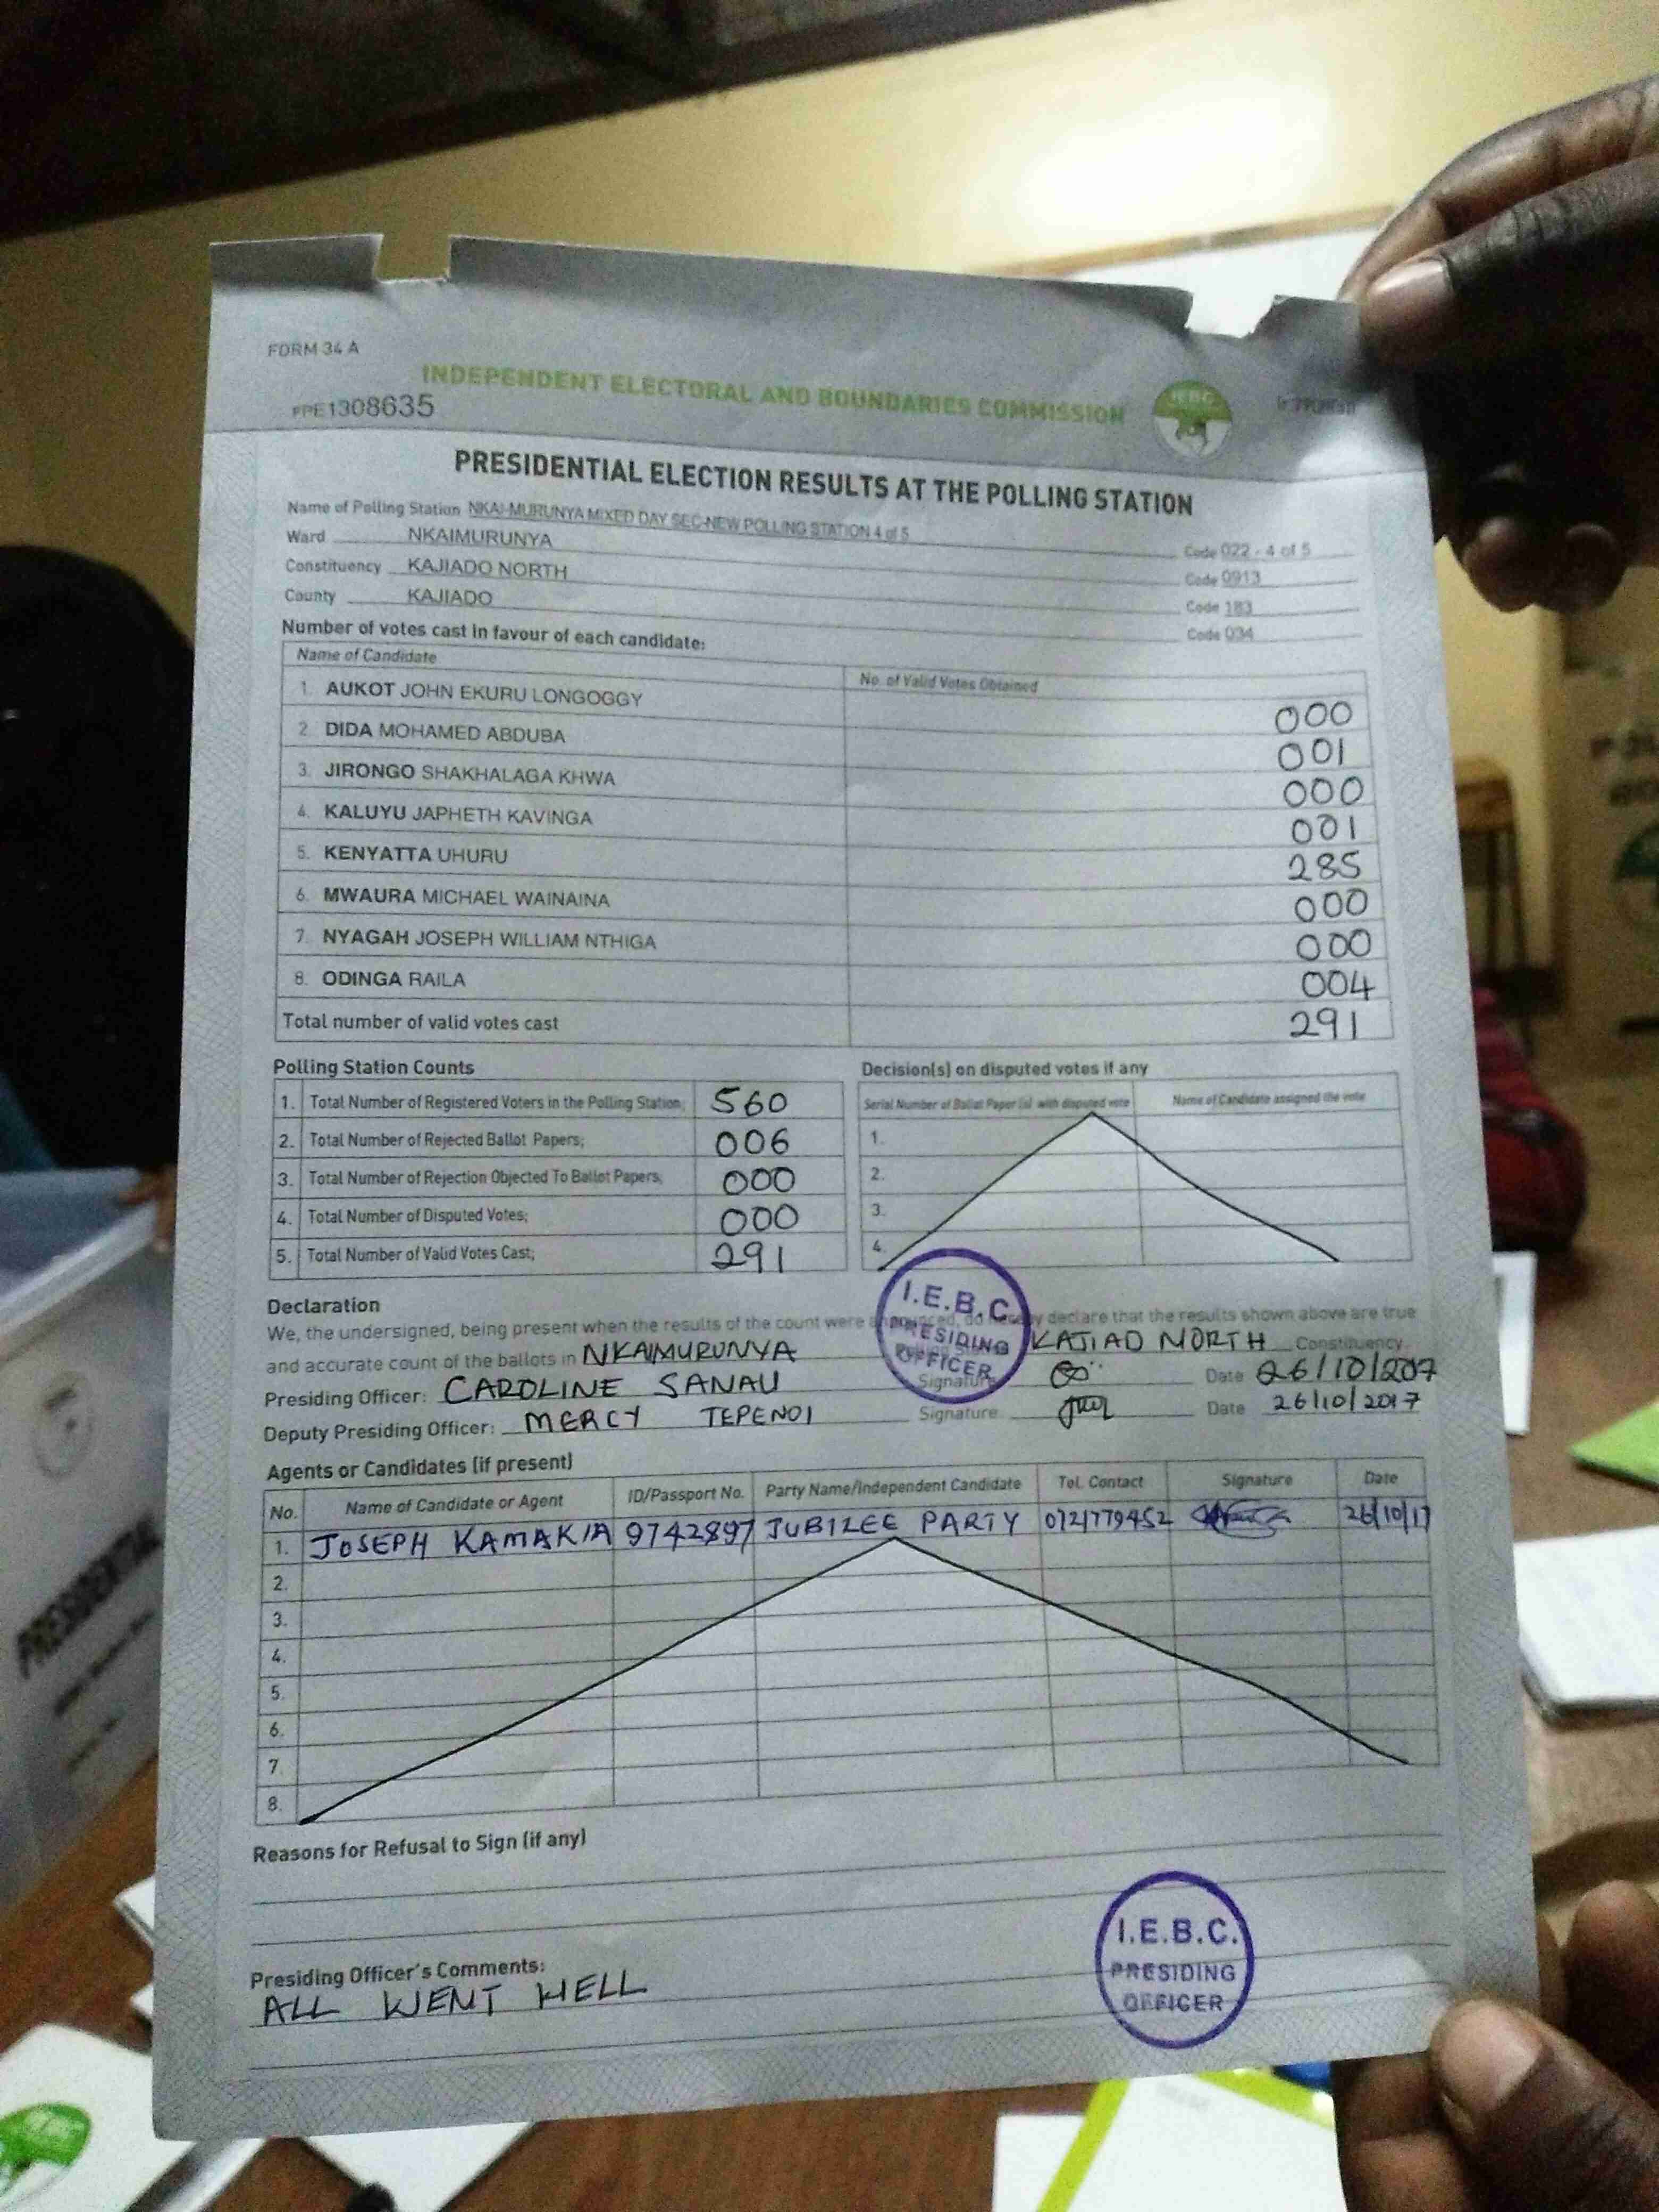 FORM 34 A
INDEPENDENT ELECTORAL AND BOUNDARIES COMMISSION
IEBC
PPE1308635
PRESIDENTIAL ELECTION RESULTS AT THE POLLING STATION
Name of Polling Station NKAI-MURUNYA MIXED DAY SEC-NEW POLLING STATION 4 of 5 Code 022 - 4 of 5
Ward NKAIMURUNYA Code 0913
Constituency KAJIADO NORTH Code 183
County KAJIADO Code 034
Number of votes cast in favour of each candidate:
Name of Candidate No. of Valid Votes Obtained
1. AUKOT JOHN EKURU LONGOGGY 000
2. DIDA MOHAMED ABDUBA 001
3. JIRONGO SHAKHALAGA KHWA 000
4. KALUYU JAPHETH KAVINGA 001
5. KENYATTA UHURU 285
6. MWAURA MICHAEL WAINAINA 000
7. NYAGAH JOSEPH WILLIAM NTHIGA 000
8. ODINGA RAILA 004
Total number of valid votes cast 291
Polling Station Counts
1. Total Number of Registered Voters in the Polling Station; 560
2. Total Number of Rejected Ballot Papers; 006
3. Total Number of Rejection Objected To Ballot Papers; 000
4. Total Number of Disputed Votes; 000
5. Total Number of Valid Votes Cast; 291
Decision(s) on disputed votes if any
Serial Number of Ballot Paper (s) with disputed vote Name of Candidate assigned the vote
1.
2.
3.
4.
Declaration
We, the undersigned, being present when the results of the count were announced, do hereby declare that the results shown above are true
and accurate count of the ballots in NKAIMURUNYA KAJIAD NORTH Constituency
Presiding Officer: CAROLINE SANAU Signature Date 26/10/2017
Deputy Presiding Officer: MERCY TEPENOI Signature Date 26/10/2017
I.E.B.C.
PRESIDING
OFFICER
Agents or Candidates (if present)
No. Name of Candidate or Agent ID/Passport No. Party Name/Independent Candidate Tel. Contact Signature Date
1. JOSEPH KAMAKIA 9742897 JUBILEE PARTY 0721779452 26/10/17
2.
3.
4.
5.
6.
7.
8.
Reasons for Refusal to Sign (if any)
Presiding Officer's Comments:
ALL WENT WELL
I.E.B.C.
PRESIDING
OFFICER
PRESIDENTIAL